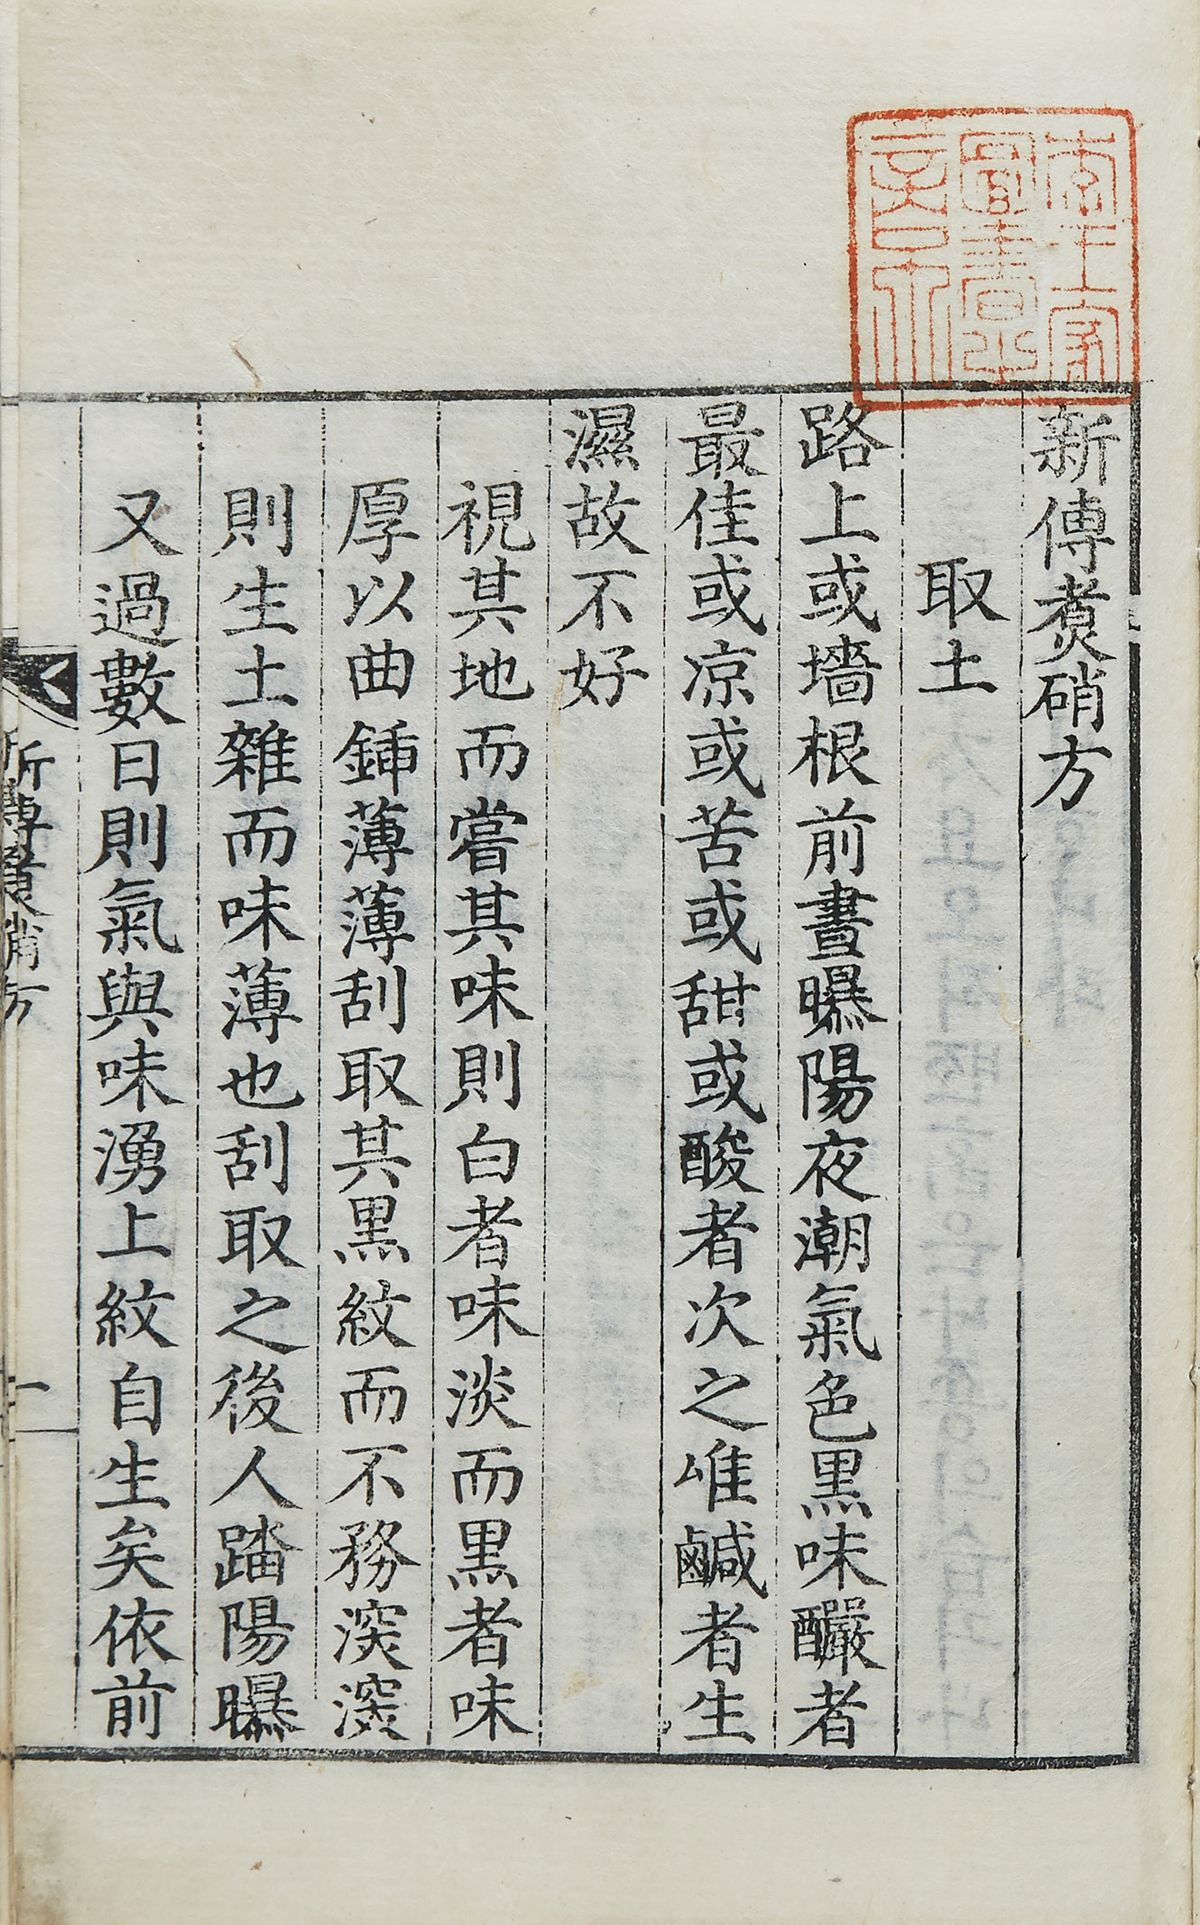 李王家圖書之章
新傳煑硝方
取土
路上或墻根前晝曝陽夜潮氣色黒味釅者
最佳或凉或苦或甜或酸者次之唯鹹者生
濕故不好
視其地而嘗其味則白者味淡而黒者味
厚以曲鍤薄薄刮取其黒紋而不務深深
則生土雜而味薄也刮取之後人踏陽曝
又過數日則氣與味湧上紋自生矣依前
新傳煑硝方
一